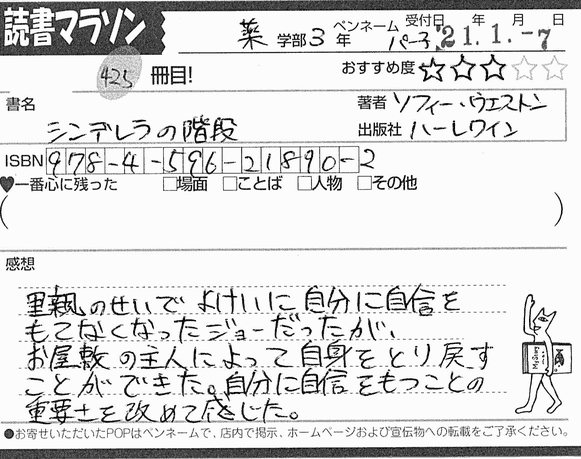 読書マラソン
薬 学部 3 年 ペンネーム パー子 受付日 年 月 日
'21.1.-7
425 冊目! おすすめ度 ☆☆☆☆☆
書名 著者 ソフィー・ウエストン
シンデレラの階段 出版社 ハーレクイン
ISBN 978-4-596-21890-2
♥一番心に残った □場面 □ことば □人物 □その他
( )
感想
里親のせいでよけいに自分に自信を
もてなくなったジョーだったが、
お屋敷の主人によって自身をとり戻す
ことができた。自分に自信をもつことの
重要さを改めて感じた。
●お寄せいただいたPOPはペンネームで、店内で掲示、ホームページおよび宣伝物への転載をご了承ください。